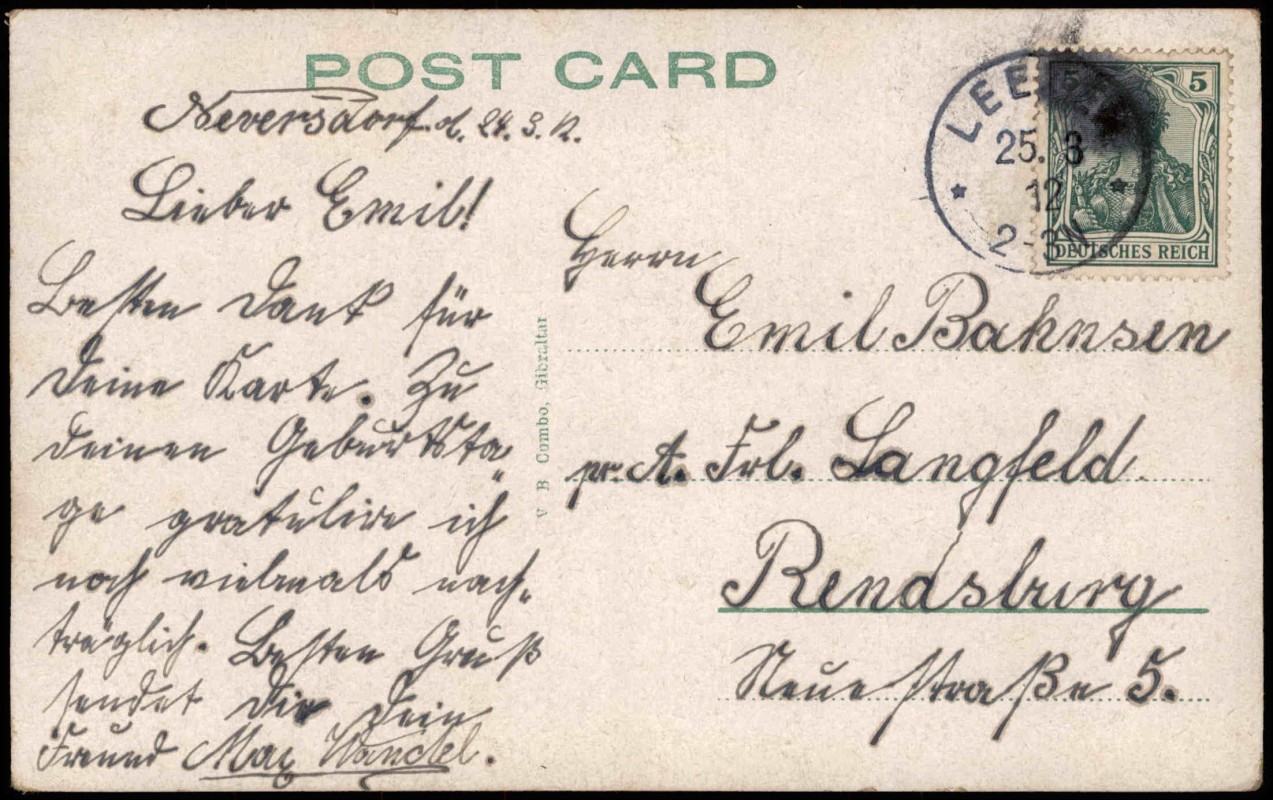 POST CARD
Neversdorf. d. 24. 3. 12.
Lieber Emil!
Besten Dank für
Deine Karte. Zu
Deinen Geburtsta„
ge gratulire ich
noch vielmals nach„
träglich. Besten Gruß
sendet Dir Dein
Freund Max Wanckel.
V B Cumbo, Gibraltar
LEEZEN
25. 3
12
2-3N
5 5
DEUTSCHES REICH
Herrn
Emil Bahnsen
pr. A. Frl. Langfeld.
Rendsburg
Neue Straße 5.